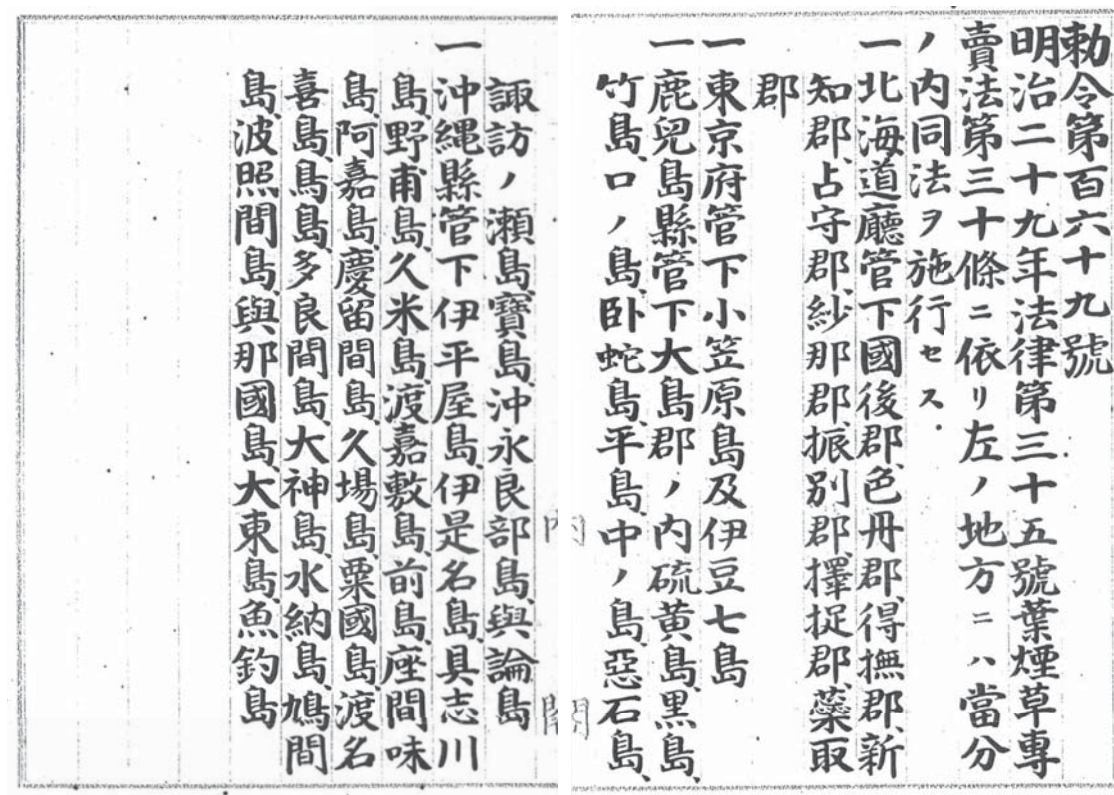 勅令第百六十九號
明治二十九年法律第三十五號葉煙草專
賣法第三十條ニ依リ左ノ地方ニハ當分
ノ内同法ヲ施行セス.
一北海道廳管下國後郡、色丹郡、得撫郡、新
知郡、占守郡、紗那郡、振別郡、擇捉郡、蘂取
郡
一東京府管下小笠原島及伊豆七島
一鹿兒島縣管下大島郡ノ内硫黄島、黒島、
竹島、口ノ島、卧蛇島、平島、中ノ島、惡石島、
諏訪ノ瀬島、寶島、沖永良部島、與論島
一沖縄縣管下伊平屋島、伊是名島、具志川
島、野甫島、久米島、渡嘉敷島、前島、座間味
島、阿嘉島、慶留間島、久場島、粟國島、渡名
喜島、鳥島、多良間島、大神島、水納島、鳩間
島、波照間島、與那國島、大東島、魚釣島
内閣